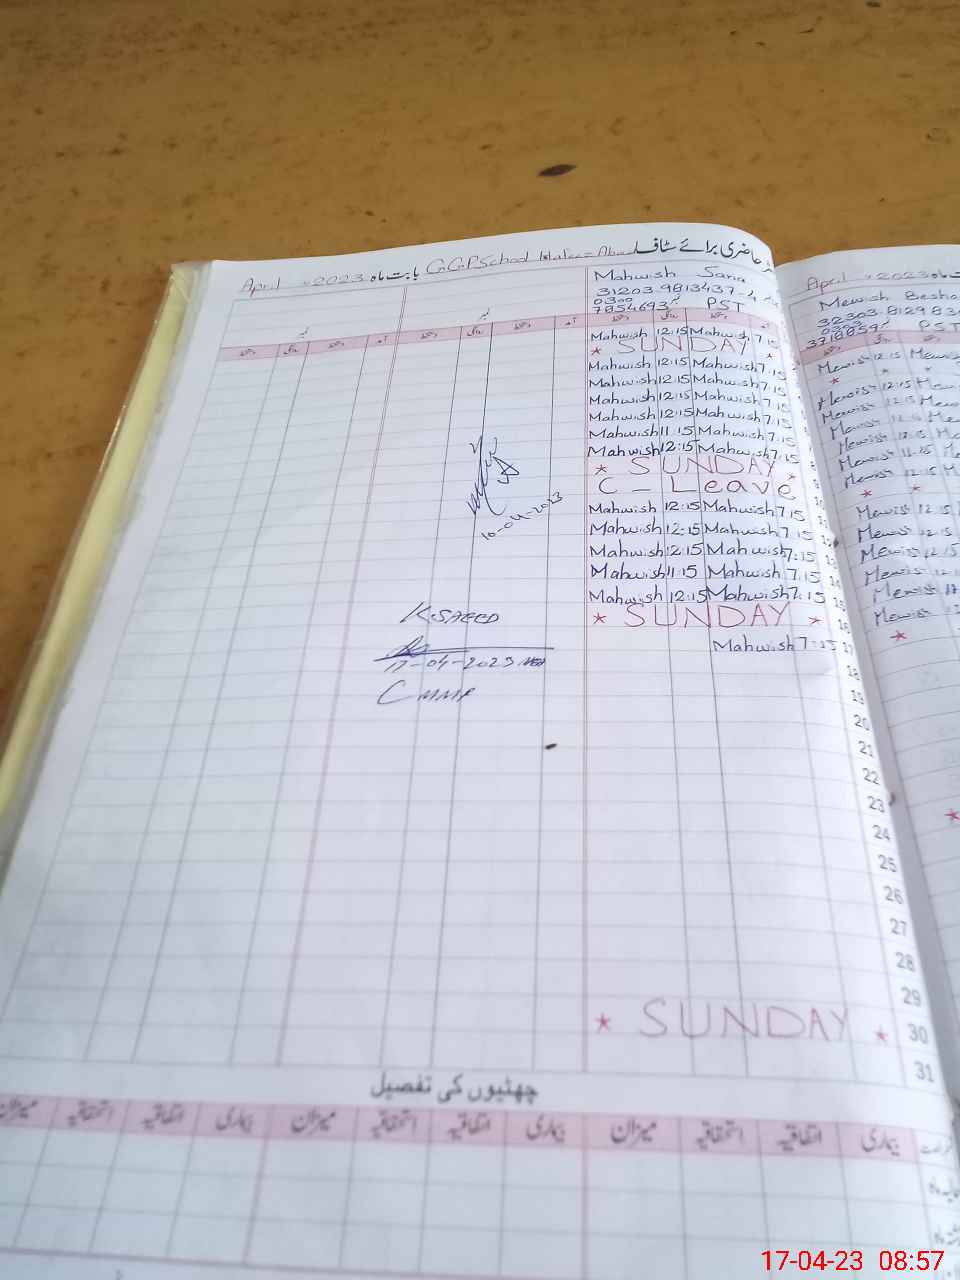 حاضری برائے سٹاف
بابت ماہ April 2023 GGPSchool
Mahwish Sana
31203-9813437-4
0300
7854693 PST
Mahwish 12:15 Mahwish 7:15
* SUNDAY *
Mahwish 12:15 Mahwish 7:15
Mahwish 12:15 Mahwish 7:15
Mahwish 12:15 Mahwish 7:15
Mahwish 12:15 Mahwish 7:15
Mahwish 11:15 Mahwish 7:15
Mahwish 12:15 Mahwish 7:15
* SUNDAY * 9
C - Leave 10
Mahwish 12:15 Mahwish 7:15 11
Mahwish 12:15 Mahwish 7:15 12
Mahwish 12:15 Mahwish 7:15 13
Mahwish 11:15 Mahwish 7:15 14
Mahwish 12:15 Mahwish 7:15 15
* SUNDAY * 16
Mahwish 7:15 17
18
19
20
21
22
23
24
25
26
27
28
29
* SUNDAY * 30
31
10-04-2023
K.SAEED
17-04-2023
چھٹیوں کی تفصیل
بیماری اتفاقیہ استحقاقیہ میزان بیماری اتفاقیہ استحقاقیہ میزان بیماری اتفاقیہ استحقاقیہ میزان
April 2023 ماہ
Mewish
PST
Mewish 12:15
Mewish 12:15
Mewish 12:15
Mewish 12:15
Mewish 11:15
Mewish 12:15
Mewish 12:15
Mewish 12:15
Mewish 12:15
Mewish
Mewish 12:15
17-04-23 08:57